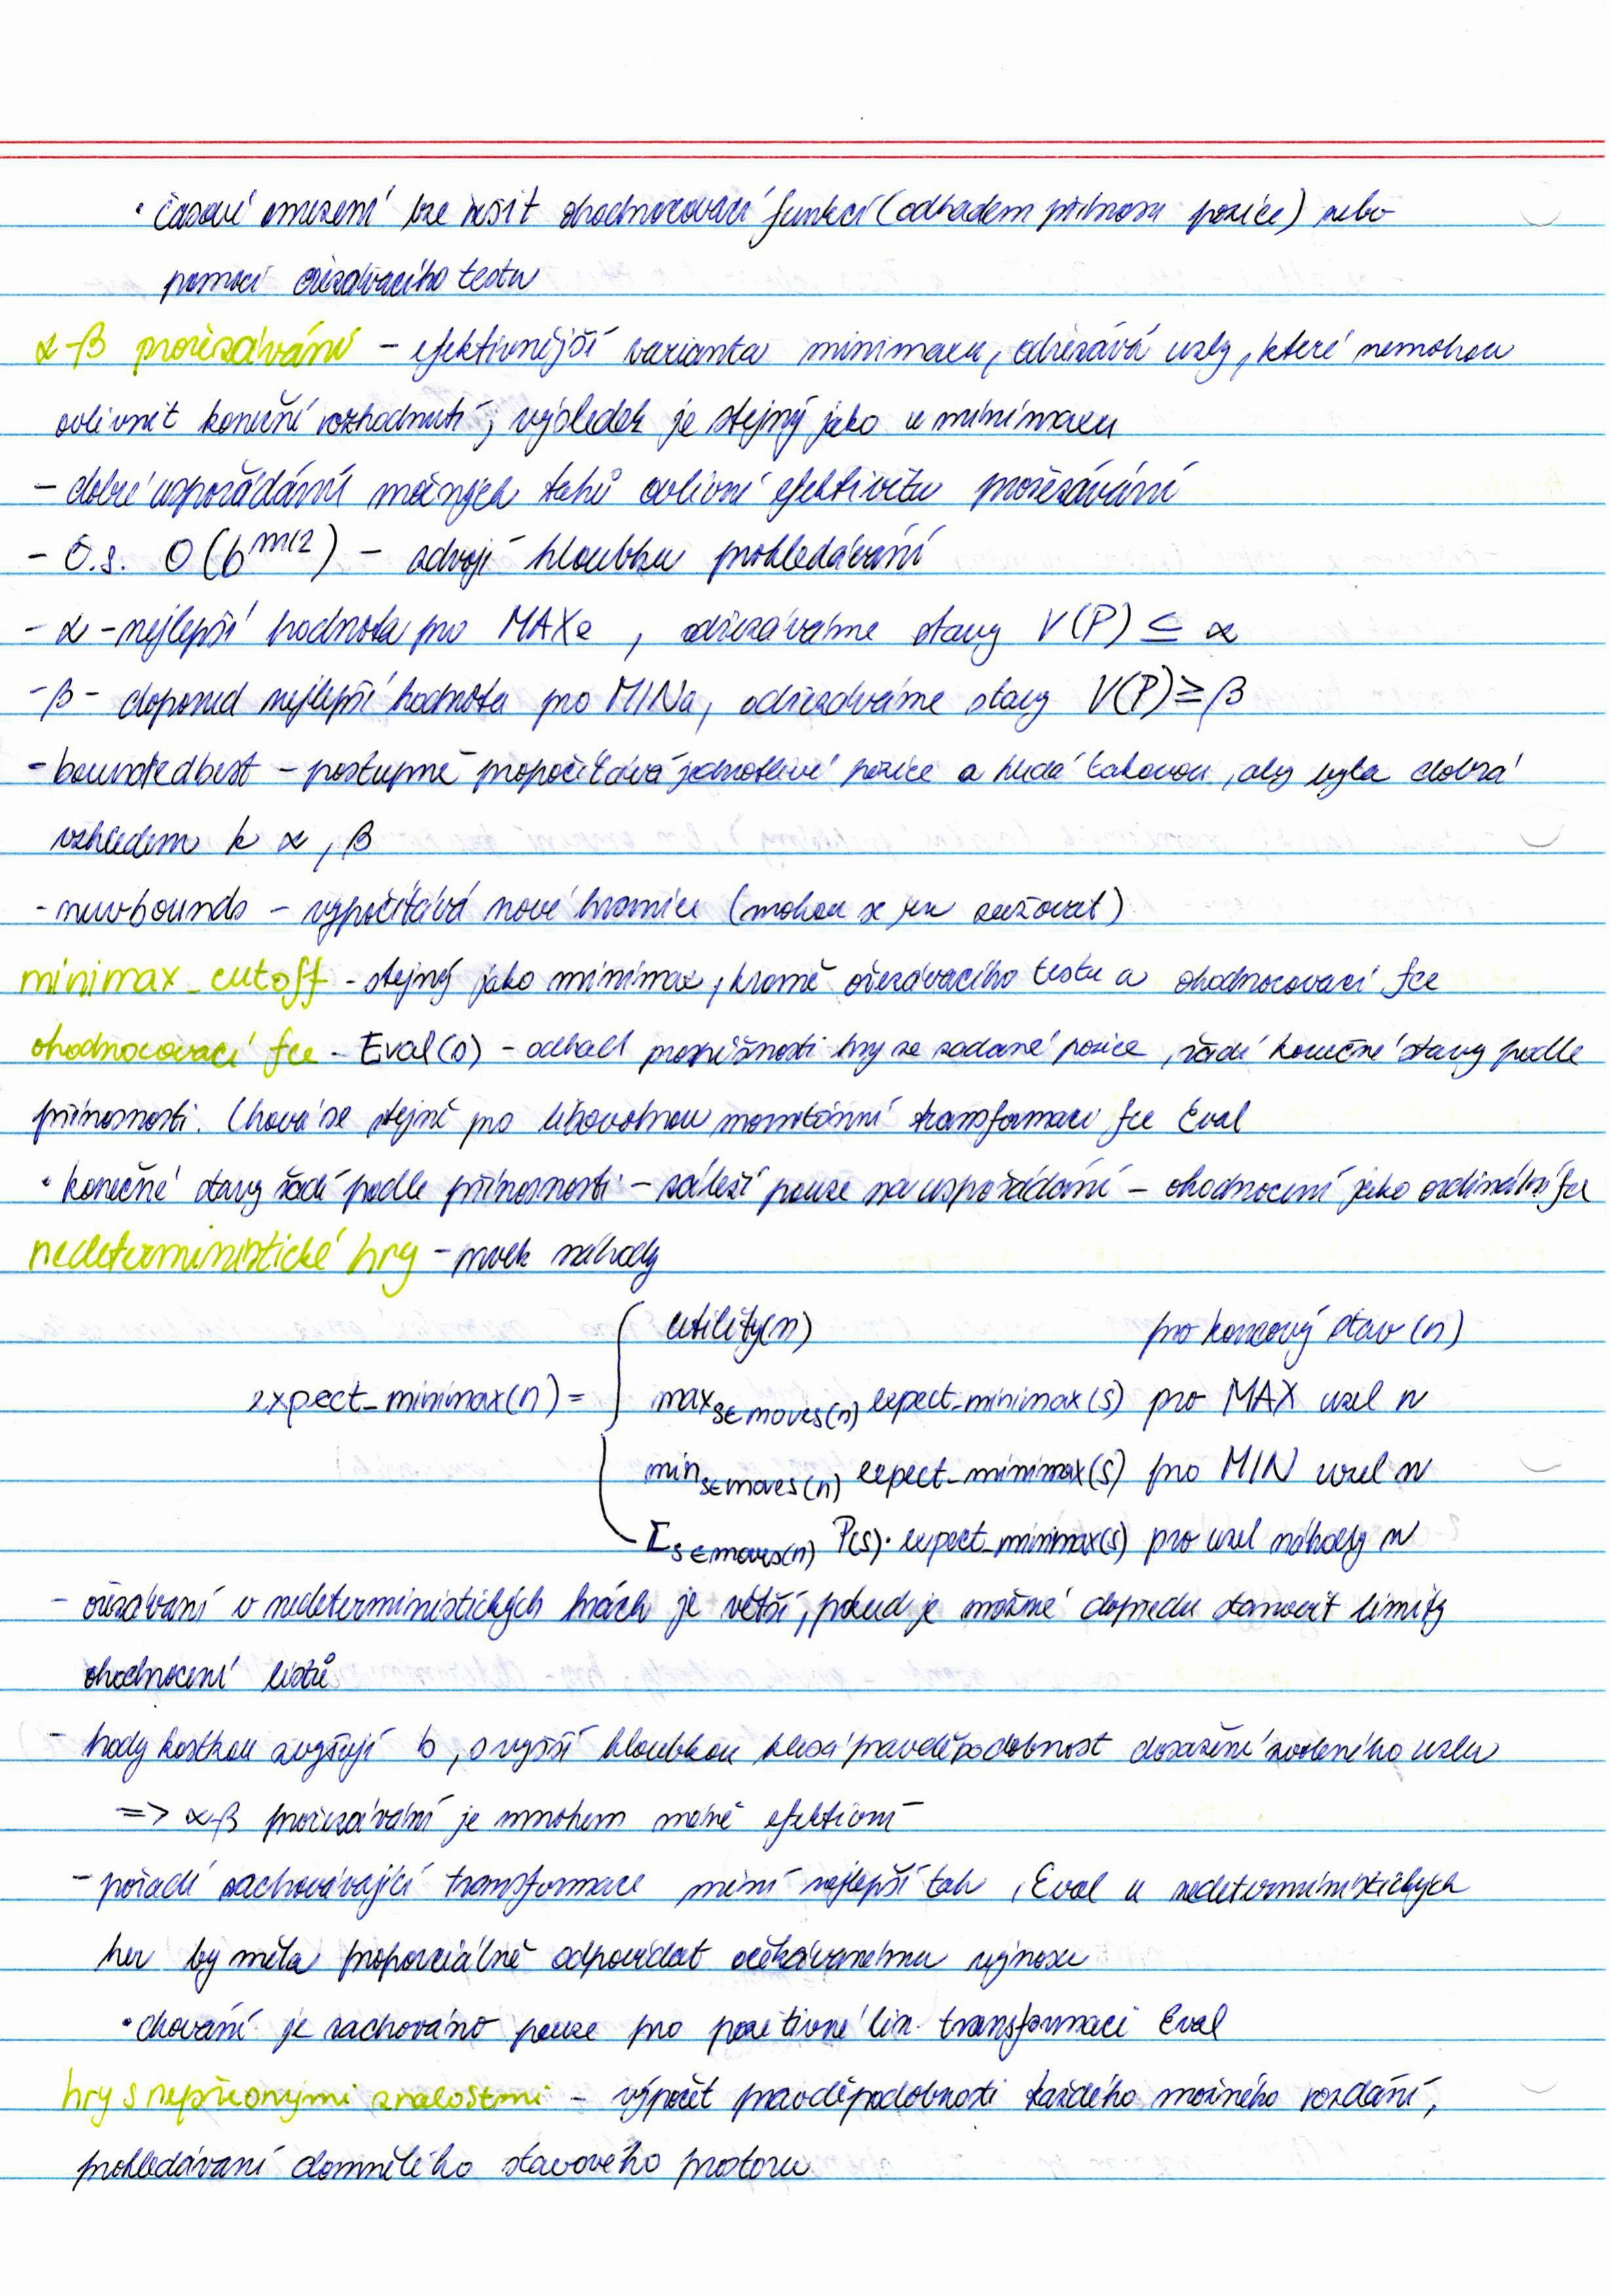 • časové omezení lze řešit ohodnocovací funkcí (odhadem přínosu pozice) nebo
pomocí ořezávacího testu
α-β prořezávání – efektivnější varianta minimaxu, odřezává uzly, které nemohou
ovlivnit konečné rozhodnutí; výsledek je stejný jako u minimaxu
– dobré uspořádání možných tahů ovlivní efektivitu prořezávání
– č.s. O(b^m/2) – zdvojí hloubku prohledávání
– α – nejlepší hodnota pro MAXe, odřezáváme stavy V(P) ≤ α
– β – doposud nejlepší hodnota pro MINa, odřezáváme stavy V(P) ≥ β
– boundedbest – postupně propočítává jednotlivé pozice a hledá takovou, aby byla dobrá
vzhledem k α, β
– newbounds – vypočítává nové hranice (mohou se jen zužovat)
minimax_cutoff – stejný jako minimax, kromě ořezávacího testu a ohodnocovací fce
ohodnocovací fce – Eval(s) – odhad prospěšnosti hry ze zadané pozice, řadí konečné stavy podle
přínosnosti. Chová se stejně pro libovolnou monotónní transformaci fce Eval
• konečné stavy řadí podle přínosnosti – záleží pouze na uspořádání – ohodnocení jako ordinální fce
nedeterministické hry – prvek náhody
utility(n) pro koncový stav (n)
expect_minimax(n) = max s∈moves(n) expect_minimax(s) pro MAX uzel n
min s∈moves(n) expect_minimax(s) pro MIN uzel n
Σ s∈moves(n) P(s)· expect_minimax(s) pro uzel náhody n
– ořezávání v nedeterministických hrách je větší, pokud je možné dopředu stanovit limity
ohodnocení listů
– hody kostkou zvyšují b, s vyšší hloubkou klesá pravděpodobnost dosažení zvoleného uzlu
=> α-β prořezávání je mnohem méně efektivní
– pořadí zachovávající transformace mění nejlepší tah, Eval u nedeterministických
her by měla proporciálně odpovídat očekávanému výnosu
• chování je zachováno pouze pro pozitivně lin. transformaci Eval
hry s nepřesnými znalostmi – výpočet pravděpodobnosti každého možného rozdání,
prohledávání domnělého stavového prostoru